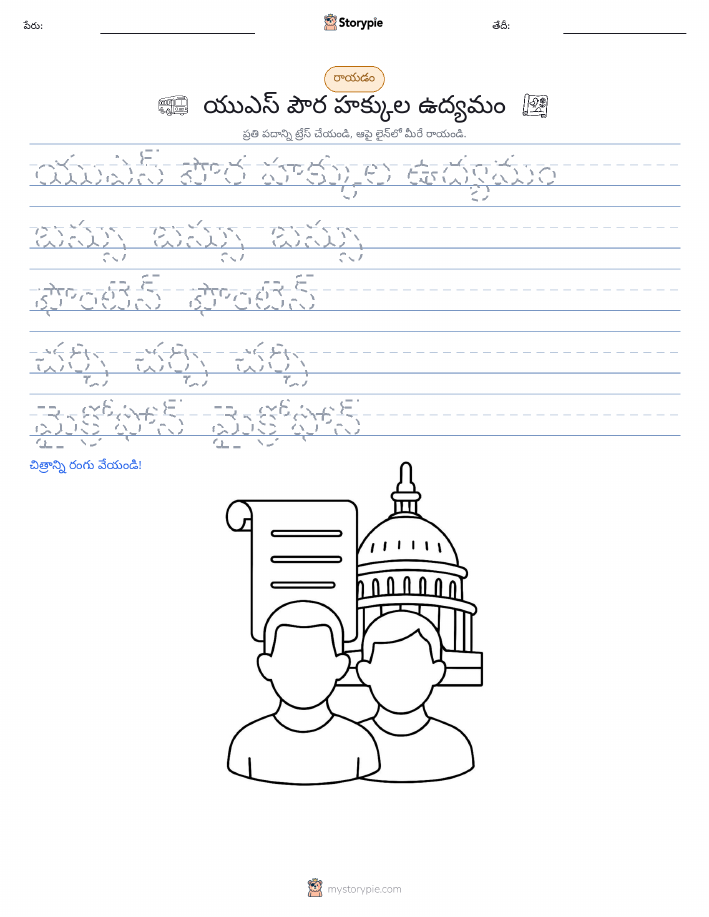 పేరు:
Storypie
తేదీ:
రాయడం
యుఎస్ పౌర హక్కుల ఉద్యమం
ప్రతి పదాన్ని ట్రేస్ చేయండి, ఆపై లైన్‌లో మీరే రాయండి.
యుఎస్ పౌర హక్కుల ఉద్యమం
బస్సు బస్సు బస్సు
ఫౌంటెన్ ఫౌంటెన్
చర్చి చర్చి చర్చి
మైక్రోఫోన్ మైక్రోఫోన్
చిత్రాన్ని రంగు వేయండి!
mystorypie.com